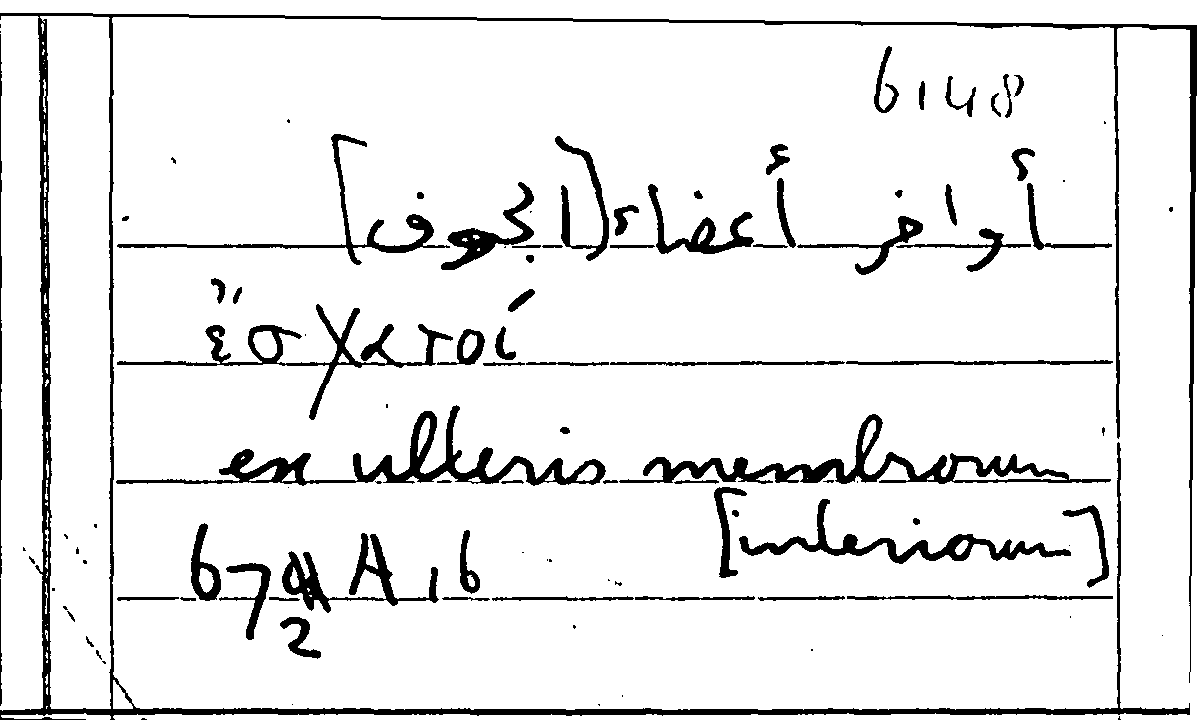 6148
أواخر أعضاء [الجوف]
ἔσχατοί
ex ulteris membrorum
[interiorum]
672 A, 6